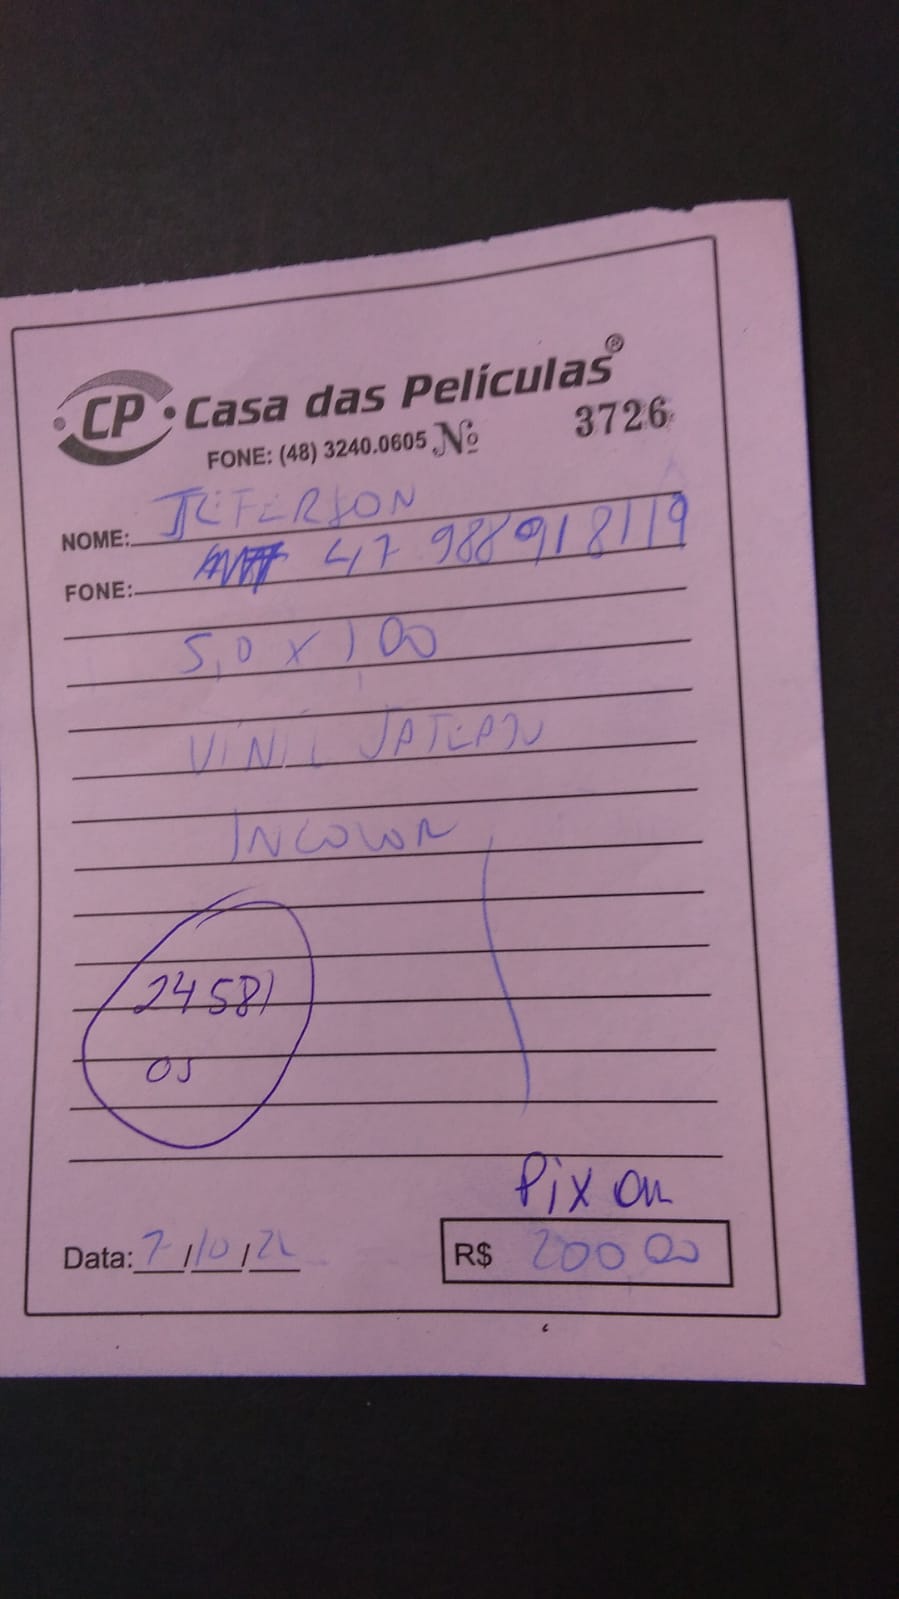 CP Casa das Películas®
FONE: (48) 3240.0605 Nº 3726
NOME: JEFERSON
FONE: 47 988918119
5,0 x 1 00
VINIL JATEADO
INCOLOR
24581
OS
Pix on
Data: 7/10/22 R$ 200 00